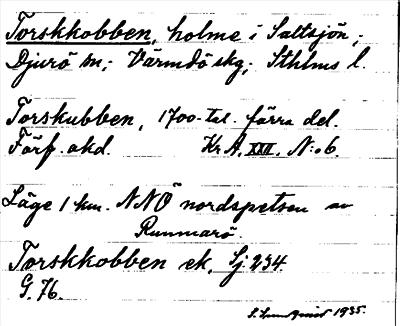 Torskkobben, holme i Saltsjön,
Djurö sn; Värmdö skg; Sthlms l.
Torskubben, 1700-tal. förra del.
Förf. okd. Kr.A. XXII. N:o 6.
Läge 1 km. NNÖ nordspetsen av
Runmarö.
Torskkobben ek. Sj. 234.
G. 76.
1935.